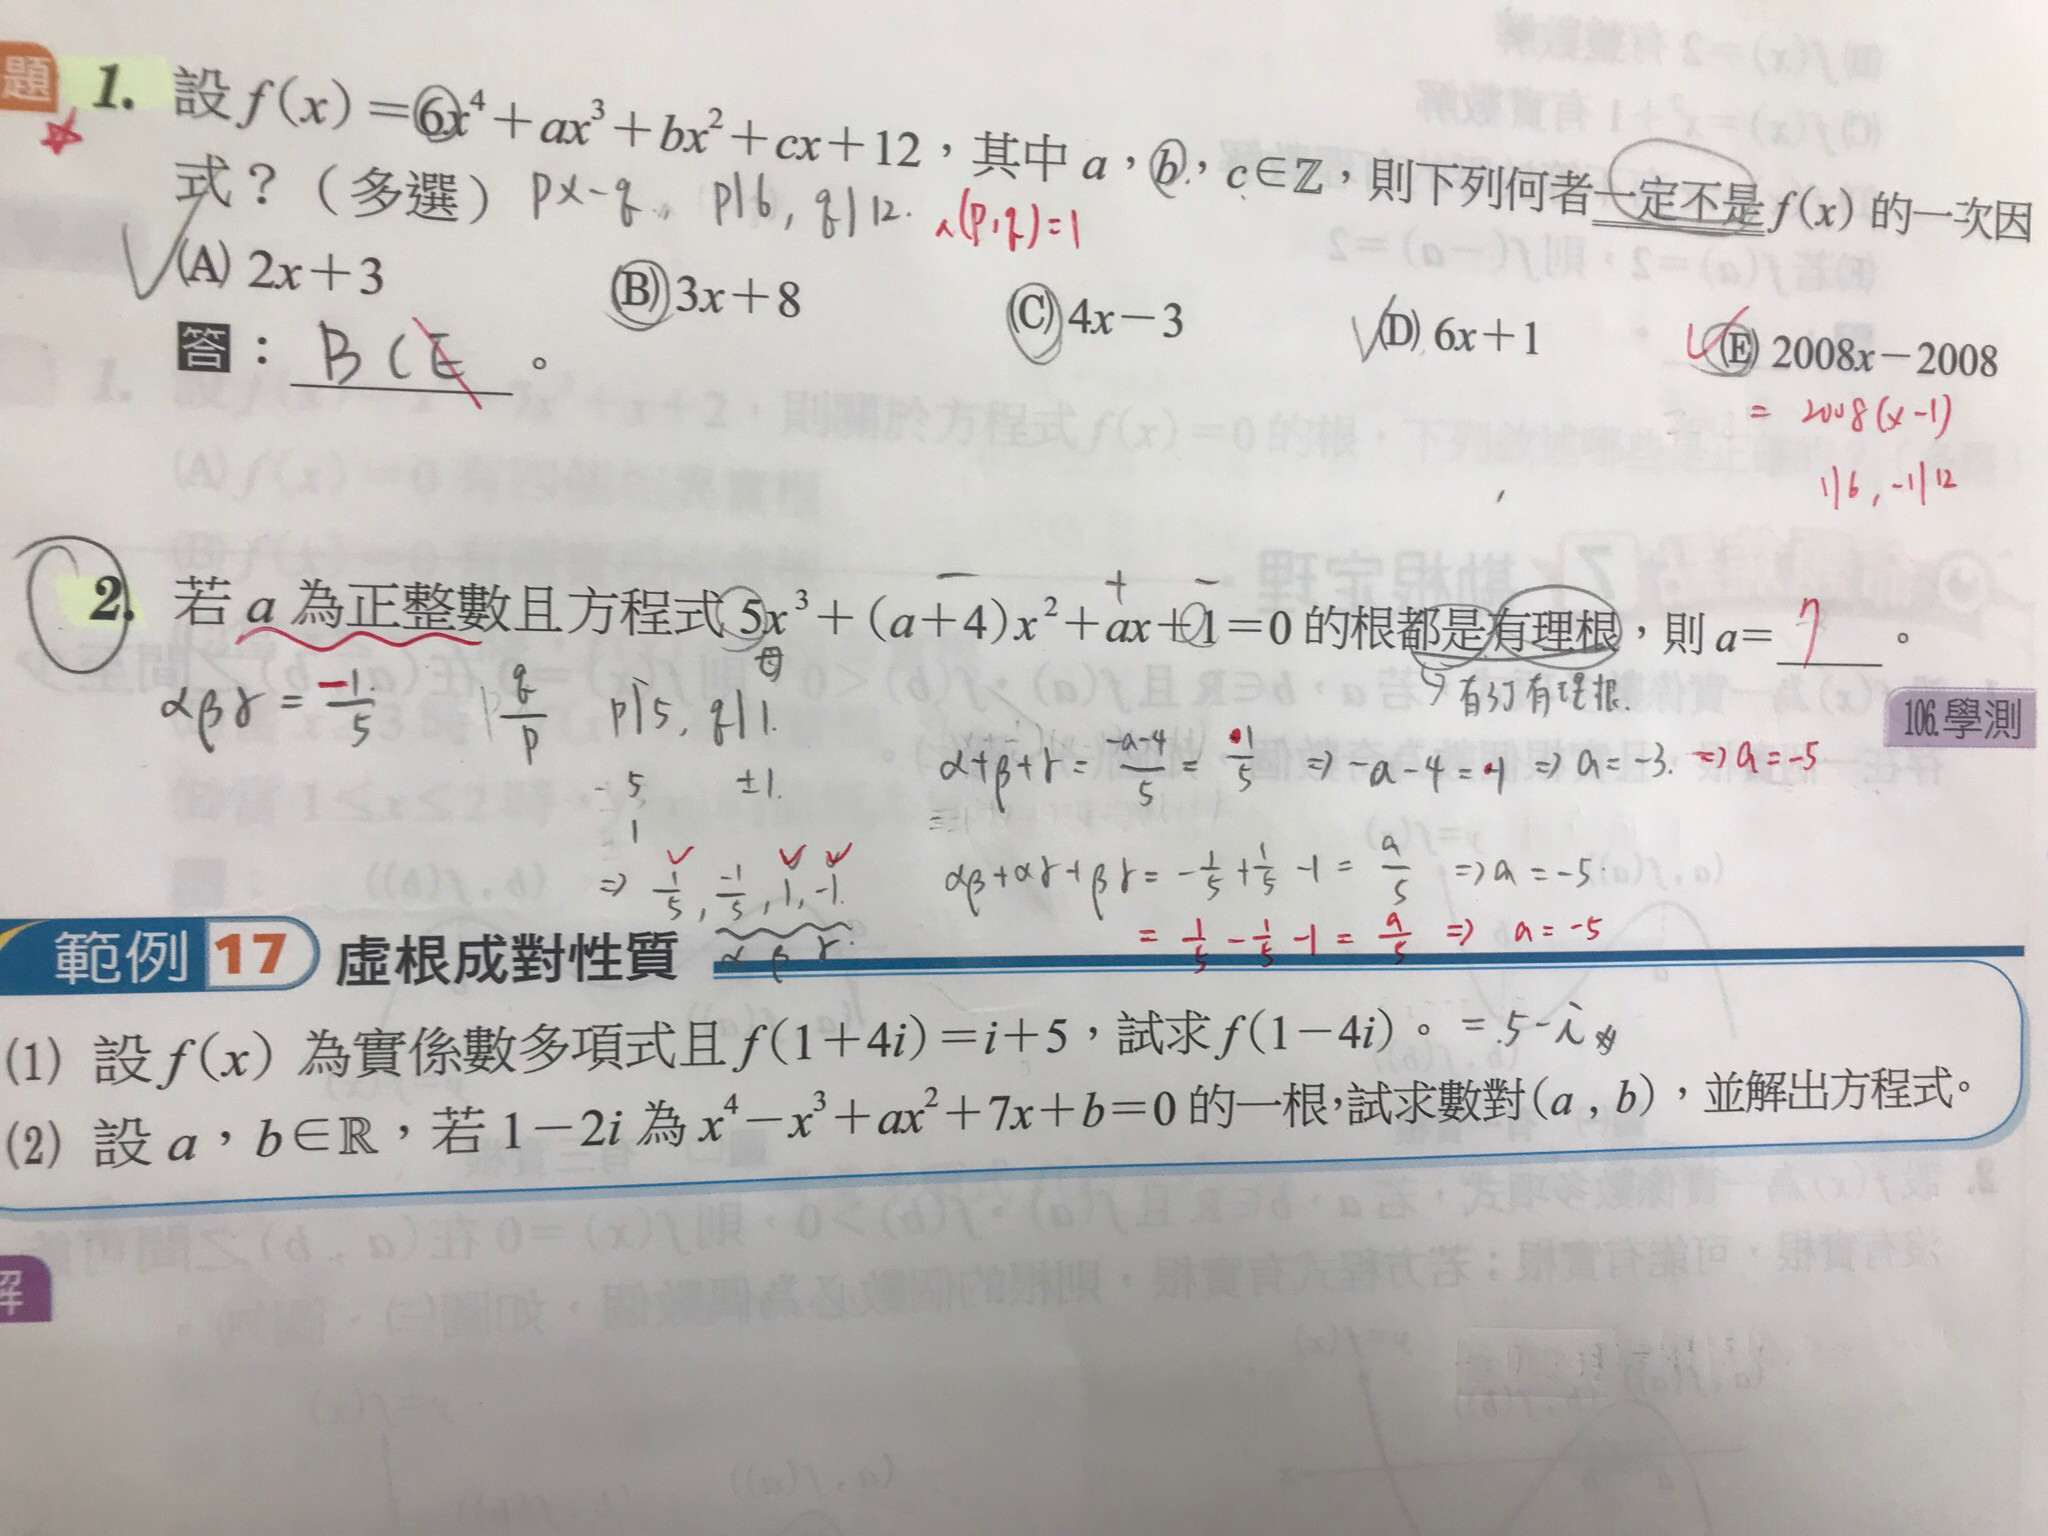 題 1. 設 f(x)=6x⁴+ax³+bx²+cx+12,其中 a,b,c∈ℤ,則下列何者一定不是 f(x) 的一次因
式?(多選) px-q, p|6, q|12. ∧(p,q)=1
(A) 2x+3 (B) 3x+8 (C) 4x-3 (D) 6x+1 (E) 2008x-2008
答: B C E 。
= 2008(x-1)
1|6, -1|12
2. 若 a 為正整數且方程式 5x³+(a+4)x²+ax+1=0 的根都是有理根,則 a= 7 。
- + -
母
→有3個有理根.
106.學測
αβγ = -1/5 q/p p|5, q|1.
5 ±1.
1
⇒ 1/5, -1/5, 1, -1.
α β γ
α+β+γ = -a-4/5 = 1/5 ⇒ -a-4=1 ⇒ a=-3. ⇒ a=-5
αβ+αγ+βγ = -1/5+1/5-1 = a/5 ⇒ a=-5.
= 1/5-1/5-1 = a/5 ⇒ a=-5
範例 17 虛根成對性質
(1) 設 f(x) 為實係數多項式且 f(1+4i)=i+5,試求 f(1-4i)。 = 5-i
(2) 設 a,b∈ℝ,若 1-2i 為 x⁴-x³+ax²+7x+b=0 的一根,試求數對(a,b),並解出方程式。
解